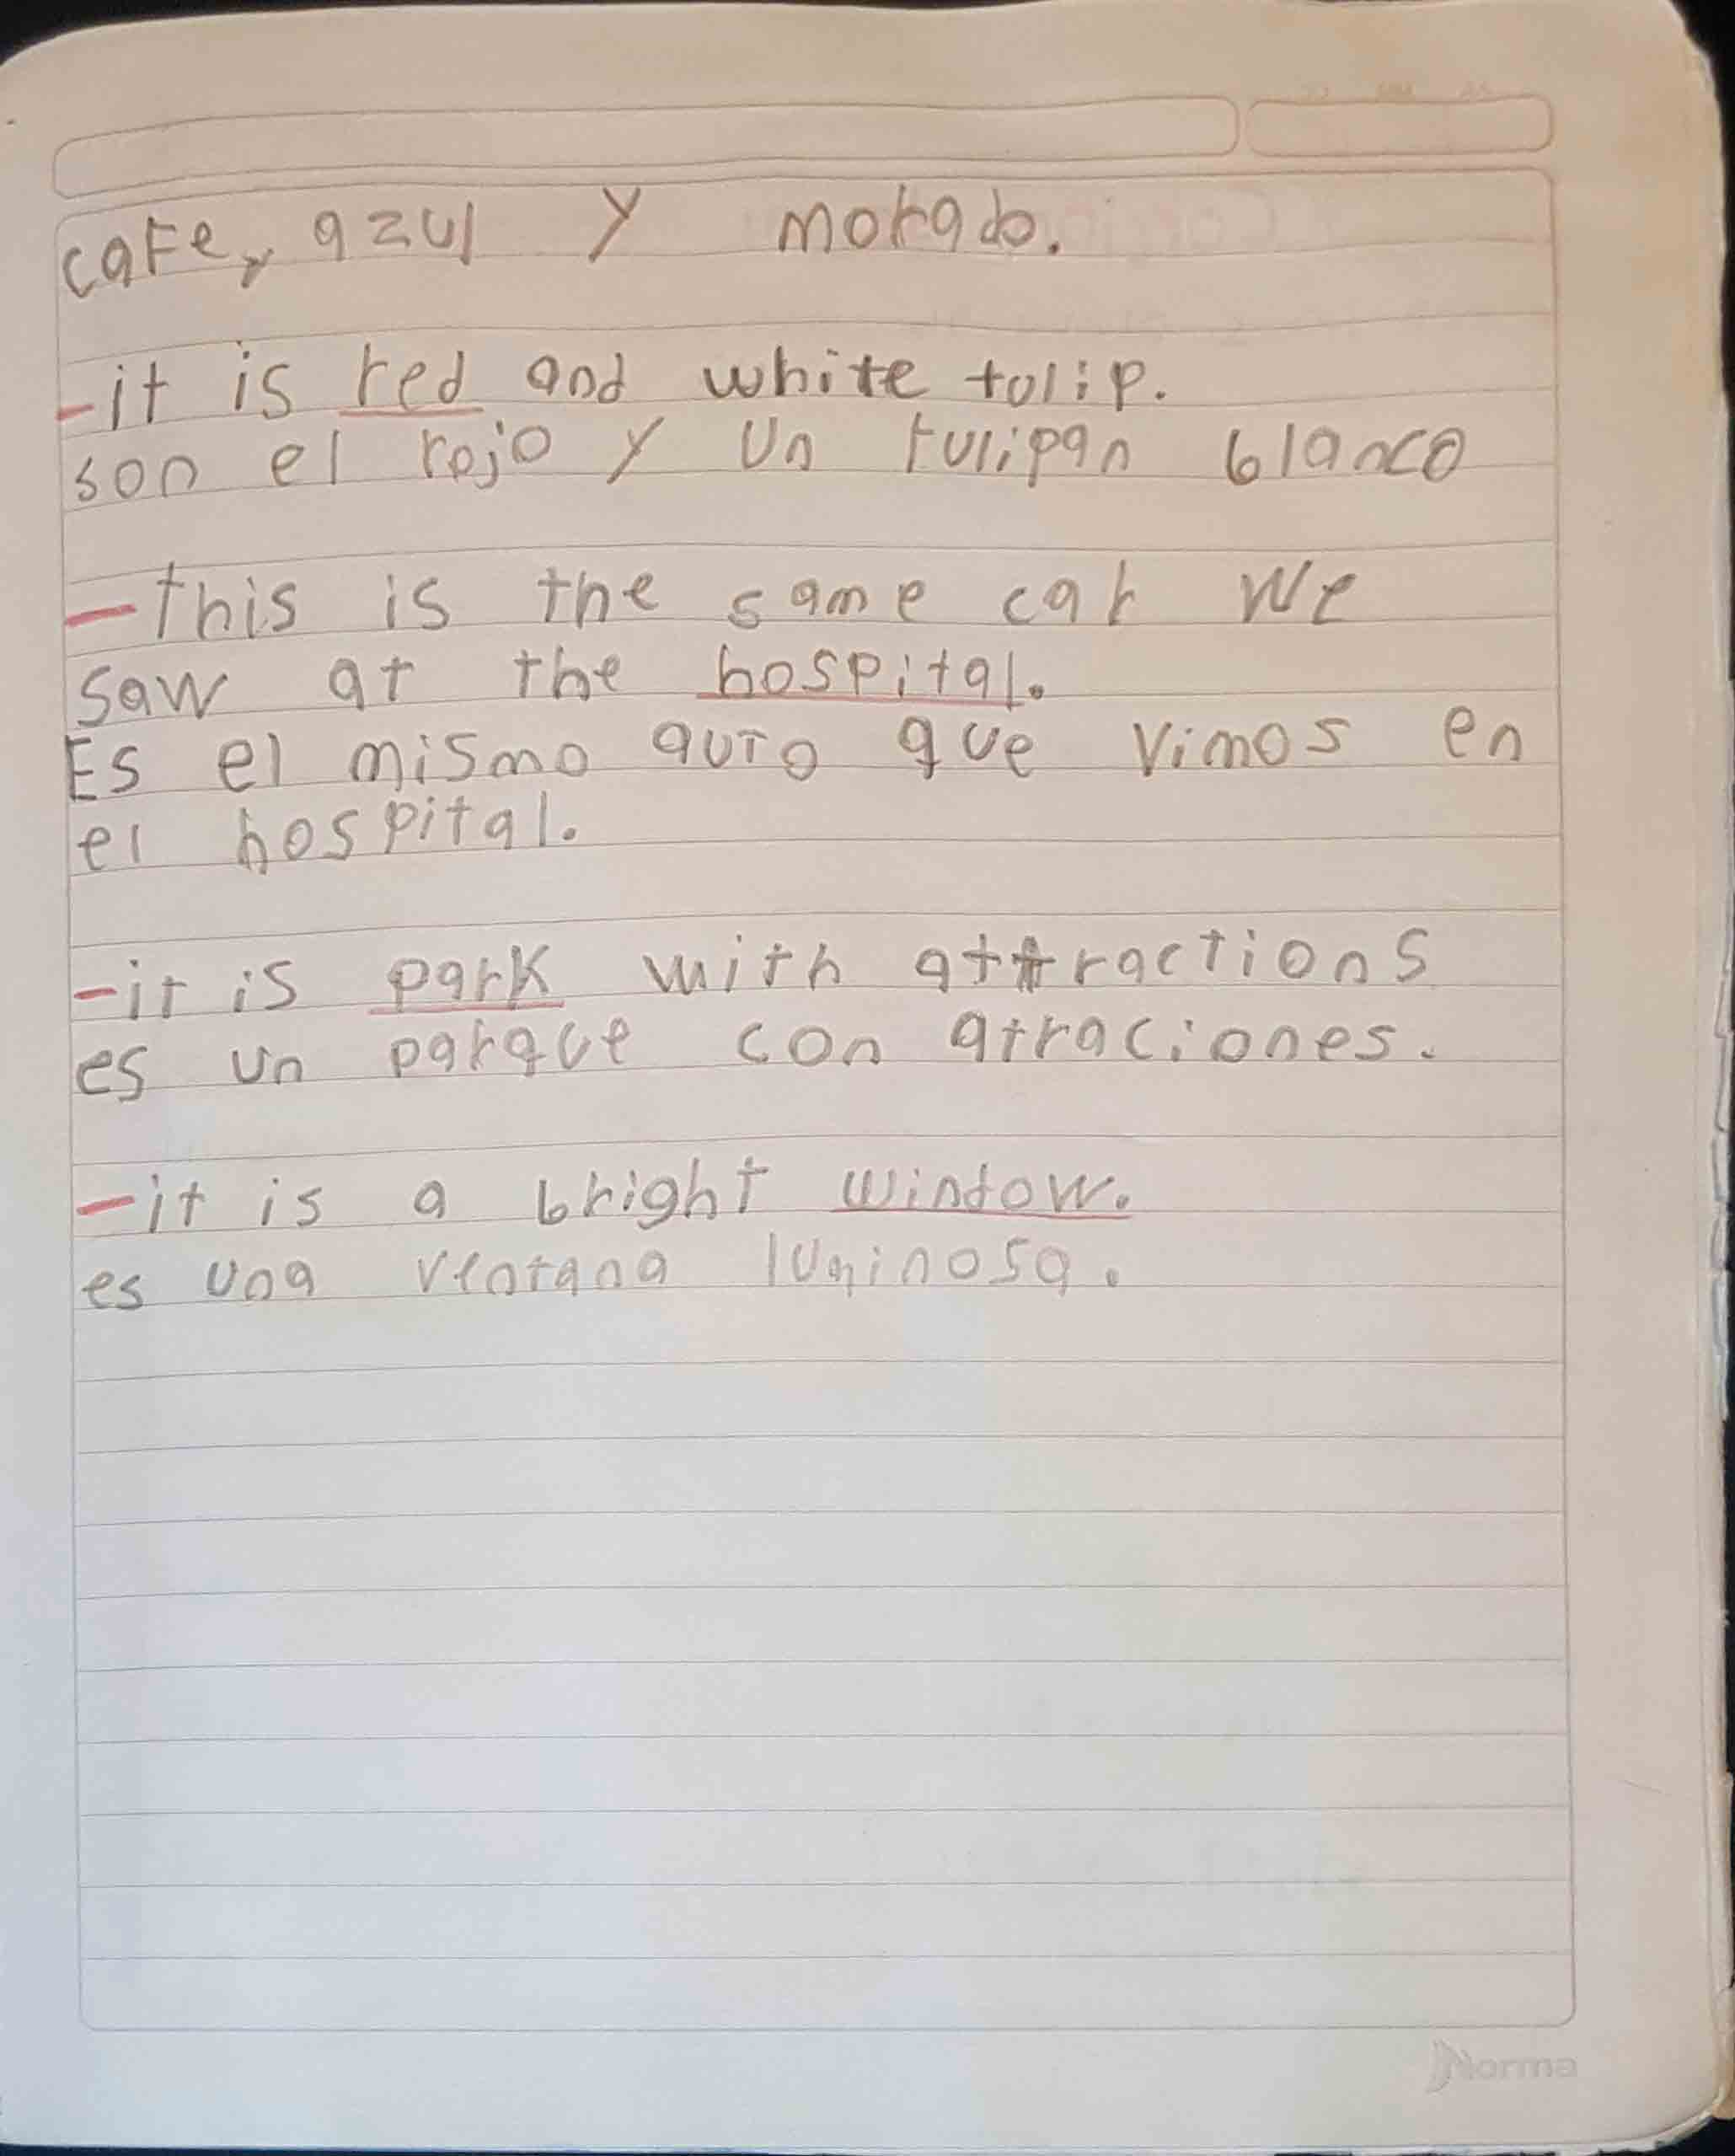 cafe, azul y morado.
-it is red and white tulip.
son el rojo y un tulipan blanco
-this is the same car we
saw at the hospital.
Es el mismo auto que vimos en
el hospital.
-it is park with attractions
es un parque con atraciones.
-it is a bright window.
es una ventana luminosa.
Norma